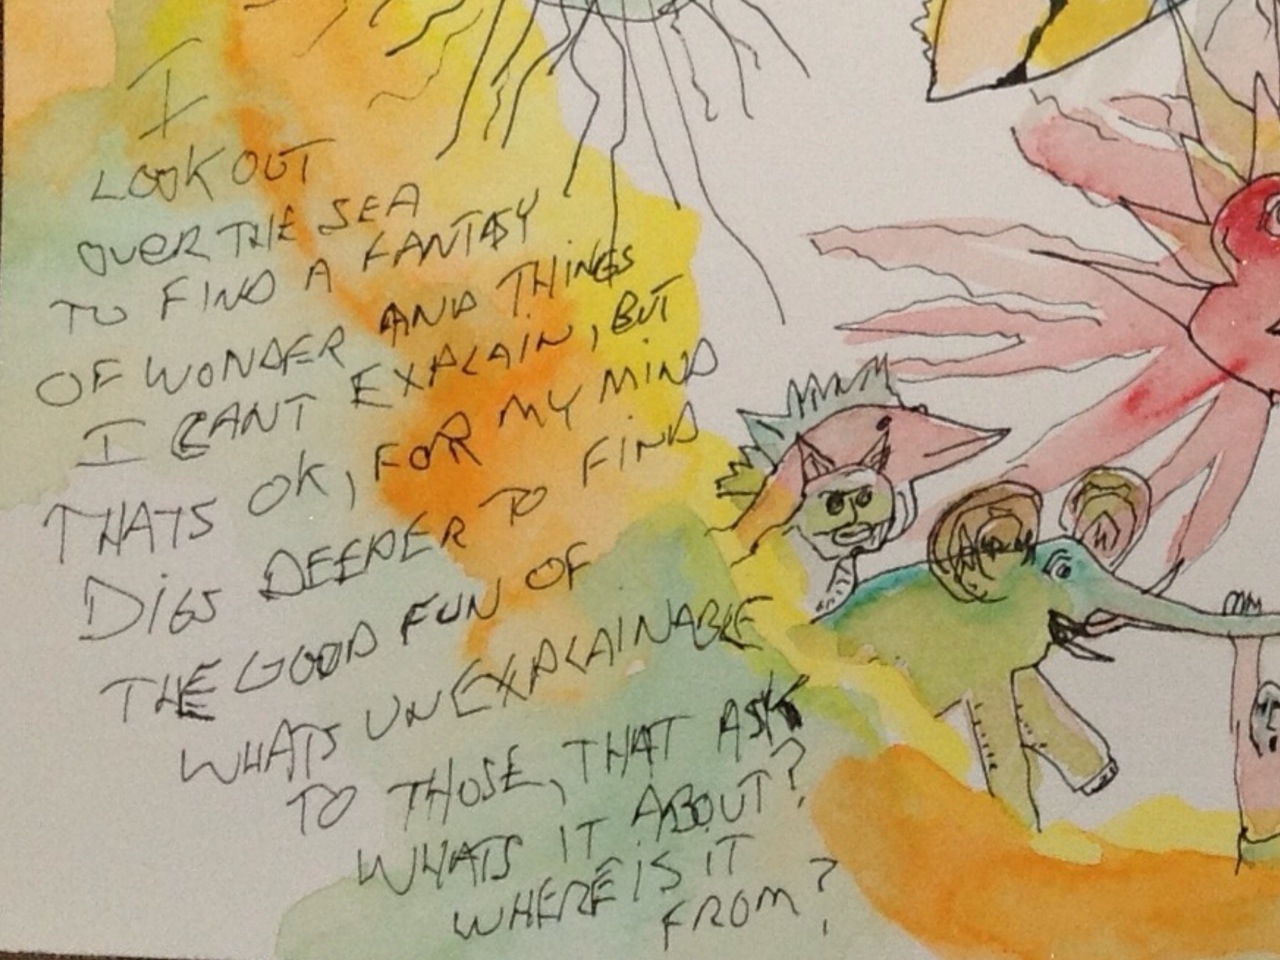 I
LOOK OUT
OVER THE SEA
TO FIND A FANTASY
OF WONDER AND THINGS
I CANT EXPLAIN, BUT
THATS OK, FOR MY MIND
DIGS DEEPER TO FIND
THE GOOD FUN OF
WHATS UNEXPLAINABLE
TO THOSE, THAT ASK
WHATS IT ABOUT?
WHERE IS IT
FROM?